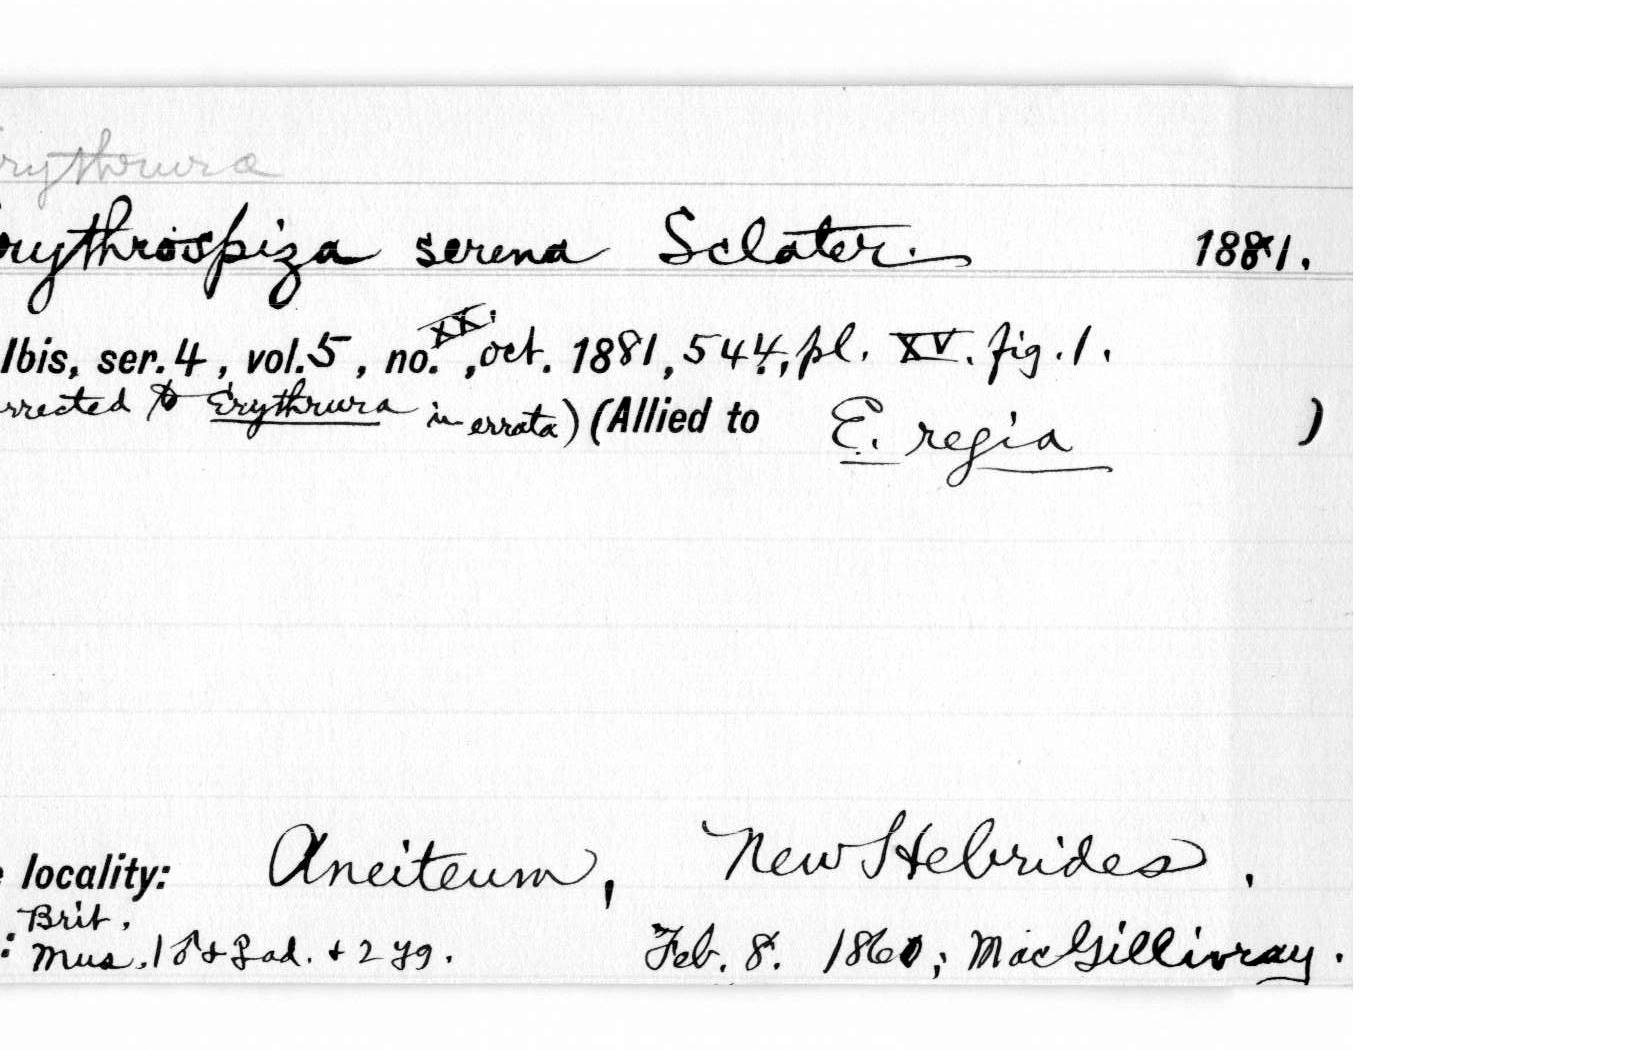 rythrura
rythrospiza serena Sclater. 1881.
Ibis, ser. 4, vol. 5, no. XX, oct. 1881, 544, pl. XV. fig. 1.
rrected to Erythrura in errata) (Allied to E. regia )
e locality: Aneiteum, New Hebrides.
: Brit. Mus. 1 ♂ + ♀ ad. + 2 yg. Feb. 8. 1860; MacGillivray.